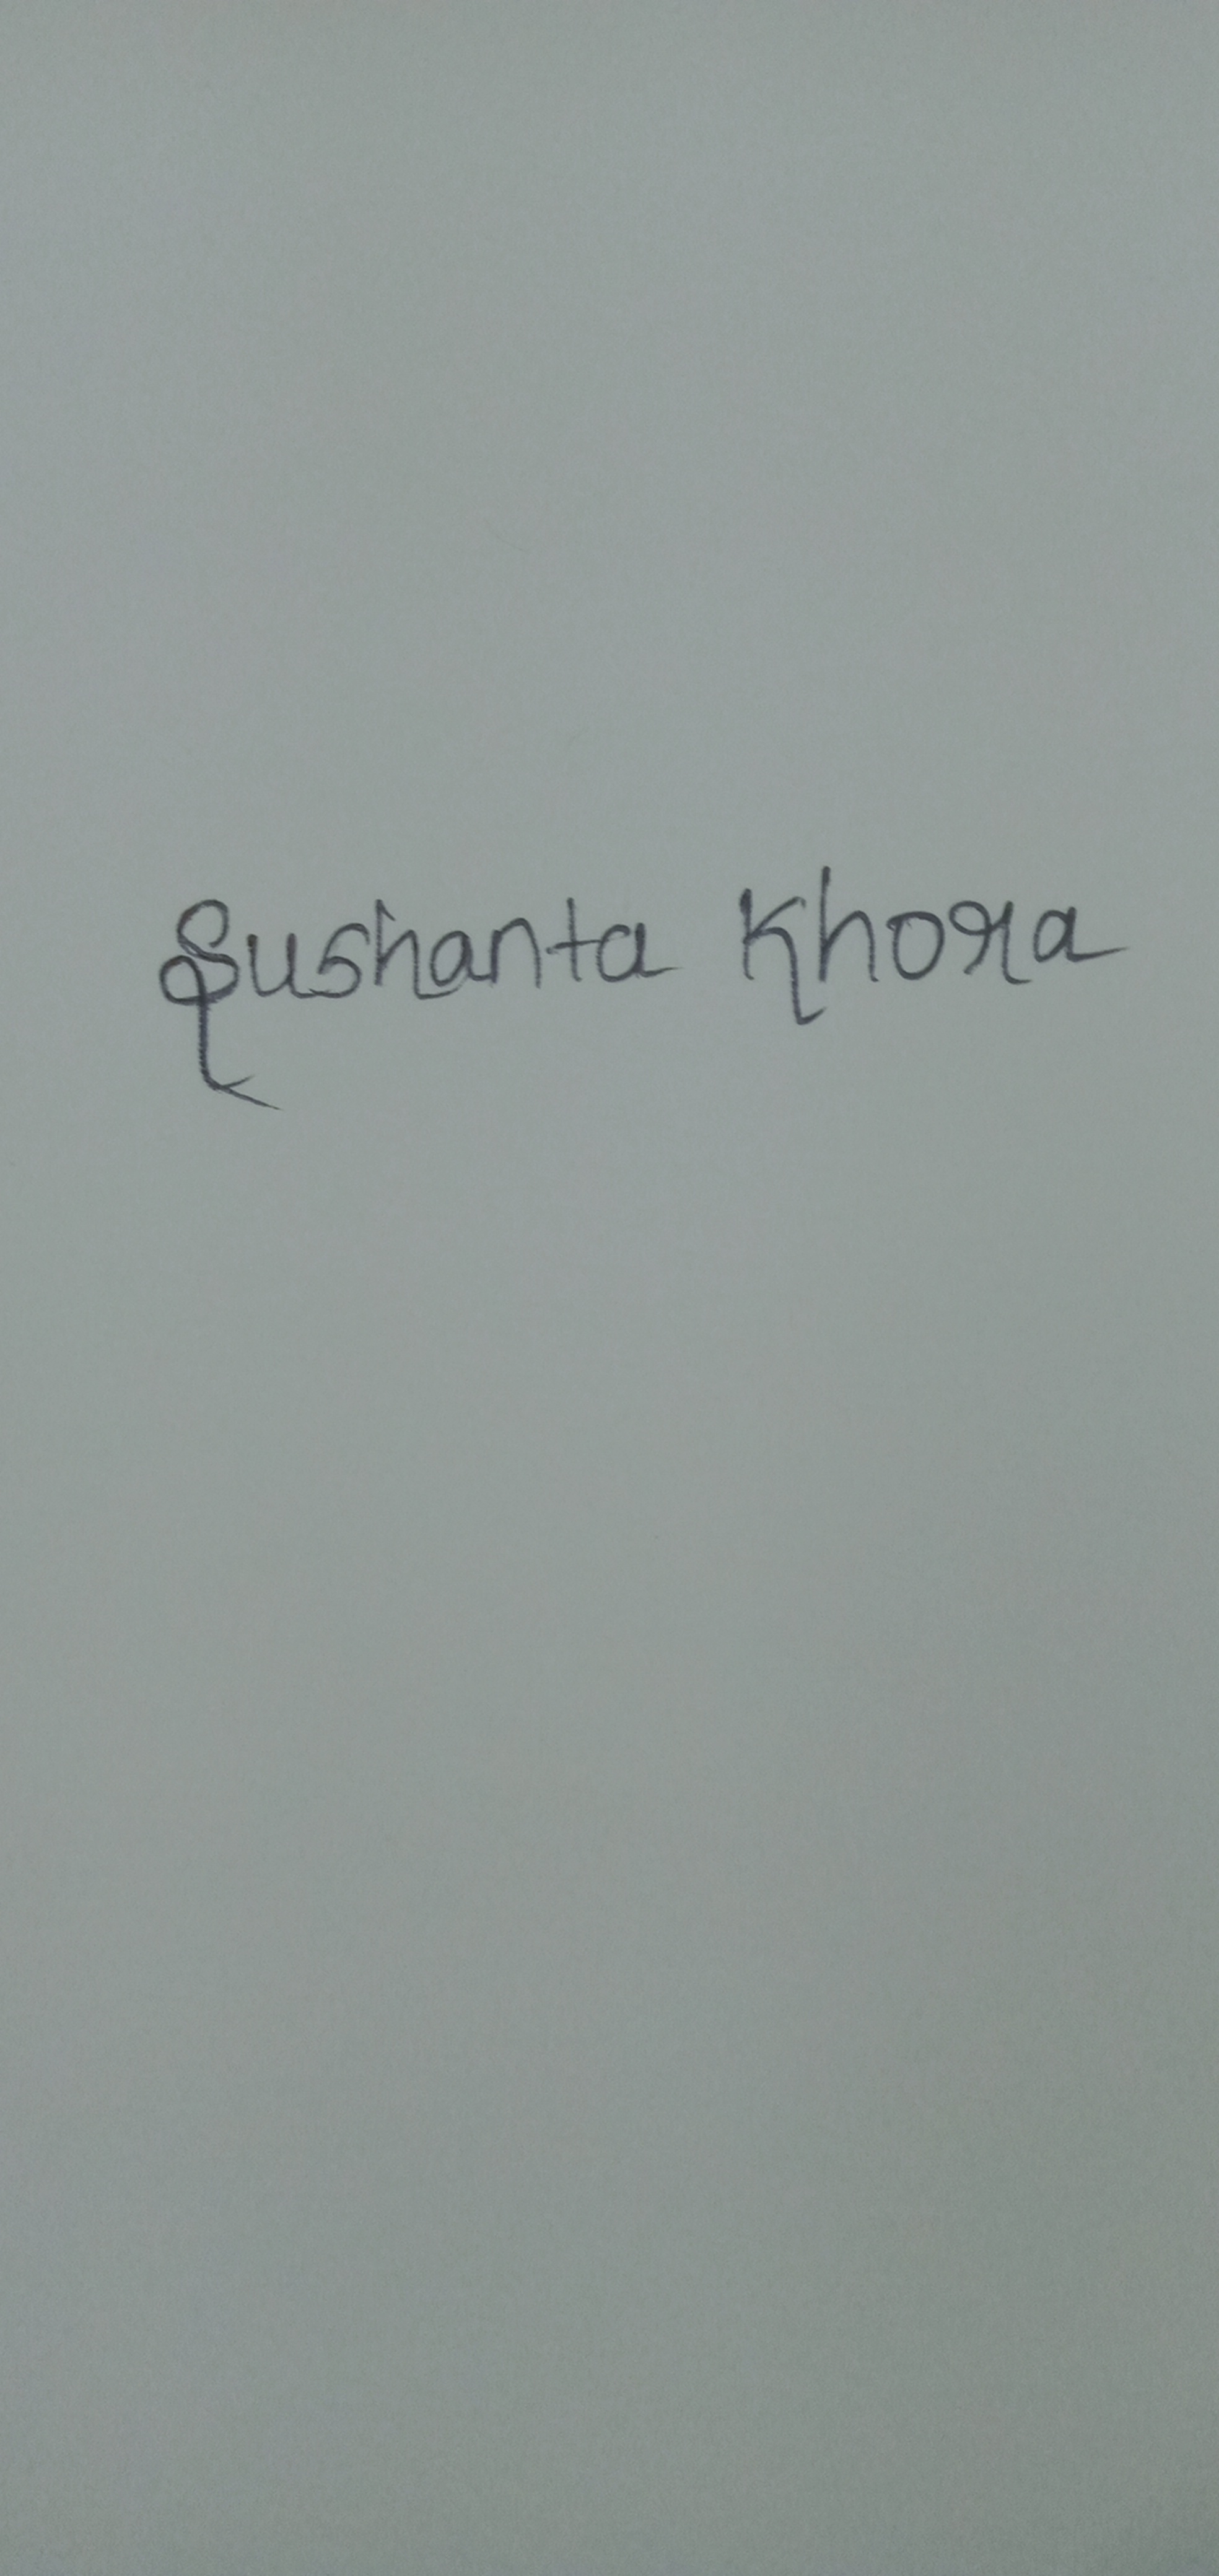 Sushanta Khora